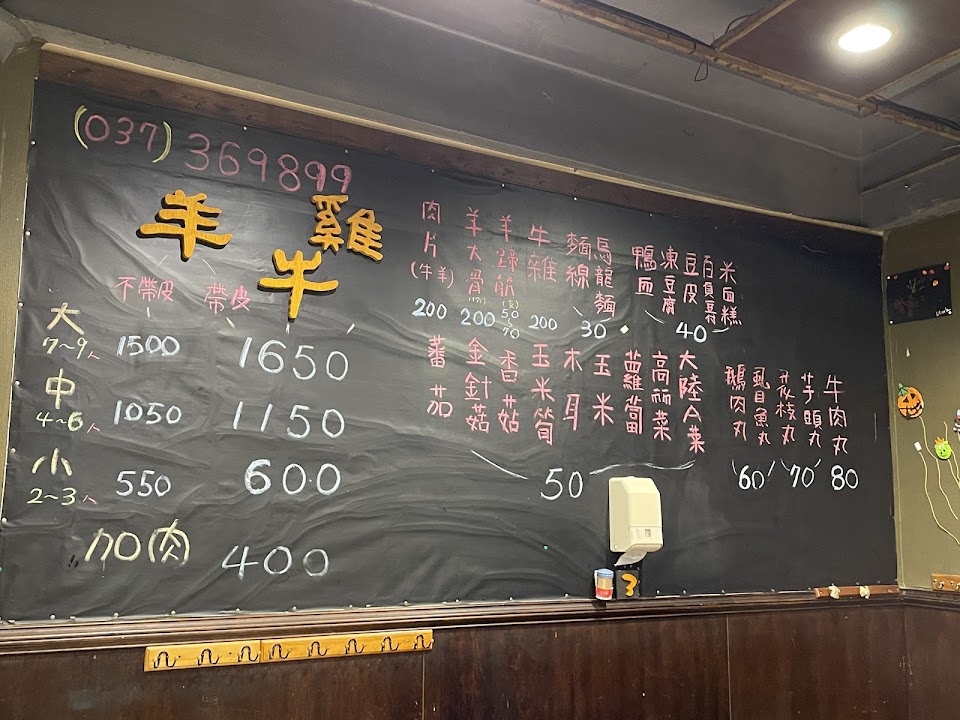 (037) 369899
羊 雞
牛
不帶皮 帶皮
大
7~9人 1500 1650
中
4~6人 1050 1150
小
2~3人 550 600
加肉 400
肉片(牛羊) 200
羊大骨 200
羊蹄筋 50~70
牛雜 200
麵線 烏龍麵 30
鴨血 凍豆腐 豆皮 百頁豆腐 米血糕 40
蕃茄 金針菇 香菇 玉米筍 木耳 玉米 蘿蔔 高麗菜 大陸A菜
50
鵝肉丸 虱目魚丸 60
花枝丸 芋頭丸 70
牛肉丸 80
3